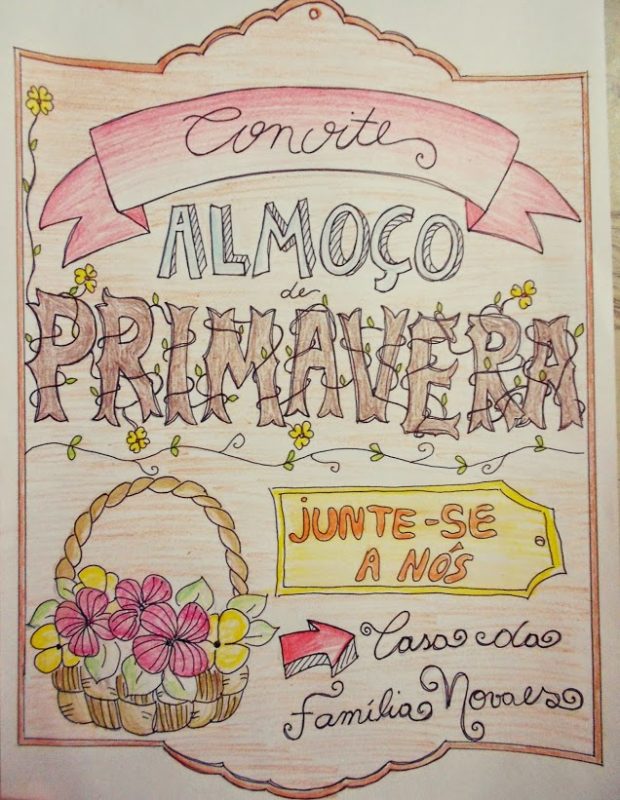 Convite
ALMOÇO
de
PRIMAVERA
JUNTE-SE
A NÓS
Casa da
Família Novaes